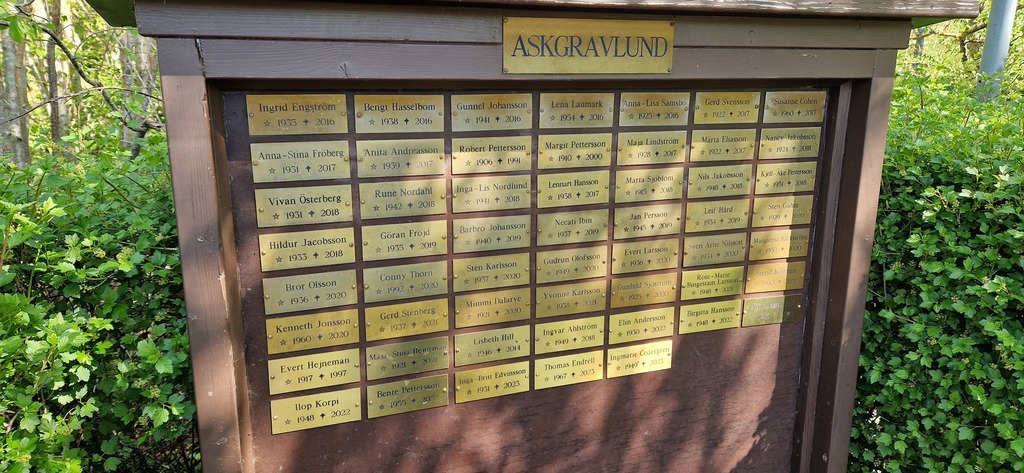 ASKGRAVLUND
Ingrid Engström
☆ 1935 ✝ 2016
Bengt Hasselbom
☆ 1938 ✝ 2016
Gunnel Johansson
☆ 1941 ✝ 2016
Lena Laumark
☆ 1954 ✝ 2016
Anna-Lisa Samsbo
☆ 1925 ✝ 2016
Gerd Svensson
☆ 1922 ✝ 2017
Susanne Cohen
☆ 1960 ✝ 2017
Anna-Stina Fröberg
☆ 1931 ✝ 2017
Anita Andreasson
☆ 1939 ✝ 2017
Robert Pettersson
☆ 1906 ✝ 1991
Margit Pettersson
☆ 1910 ✝ 2000
Maja Lindström
☆ 1928 ✝ 2017
Märta Eliasson
☆ 1922 ✝ 2017
Nancy Jakobsson
☆ 1924 ✝ 2018
Vivan Österberg
☆ 1931 ✝ 2018
Rune Nordahl
☆ 1942 ✝ 2018
Inga-Lis Nordlund
☆ 1941 ✝ 2018
Lennart Hansson
☆ 1938 ✝ 2017
Marta Sjöblom
☆ 1915 ✝ 2018
Nils Jakobsson
☆ 1948 ✝ 2018
Kjell-Åke Pettersson
☆ 1951 ✝ 2018
Hildur Jacobsson
☆ 1933 ✝ 2018
Göran Fröjd
☆ 1935 ✝ 2019
Barbro Johansson
☆ 1940 ✝ 2019
Necati Ibin
☆ 1937 ✝ 2019
Jan Persson
☆ 1945 ✝ 2019
Leif Hård
☆ 1934 ✝ 2019
Sten Gahm
☆ 1929 ✝ 2020
Bror Olsson
☆ 1936 ✝ 2020
Conny Thorn
☆ 1992 ✝ 2020
Sten Karlsson
☆ 1937 ✝ 2020
Gudrun Olofsson
☆ 1949 ✝ 2020
Evert Larsson
☆ 1936 ✝ 2020
Sven Arne Nilsson
☆ 1934 ✝ 2020
Kenneth Jonsson
☆ 1960 ✝ 2020
Gerd Stenberg
☆ 1937 ✝ 2021
Mimmi Dalarve
☆ 1921 ✝ 2020
Yvonne Karlsson
☆ 1958 ✝ 2021
Gunhild Sjöström
☆ 1925 ✝ 2020
Rose-Marie
Bingestam Larsson
☆ 1948 ✝ 2021
Evert Hejneman
☆ 1917 ✝ 1997
Maj-Stina Hejneman
☆ 1921 ✝ 2021
Lisbeth Hill
☆ 1946 ✝ 2014
Ingvar Ahlström
☆ 1949 ✝ 2018
Elin Andersson
☆ 1930 ✝ 2022
Birgitta Hansson
☆ 1948 ✝ 2022
Ilop Korpi
☆ 1948 ✝ 2022
Bente Pettersson
☆ 1955 ✝ 2022
Inga-Britt Edvinsson
☆ 1931 ✝ 2023
Thomas Endrell
☆ 1967 ✝ 2023
Ingmarie Cedergren
☆ 1949 ✝ 2023